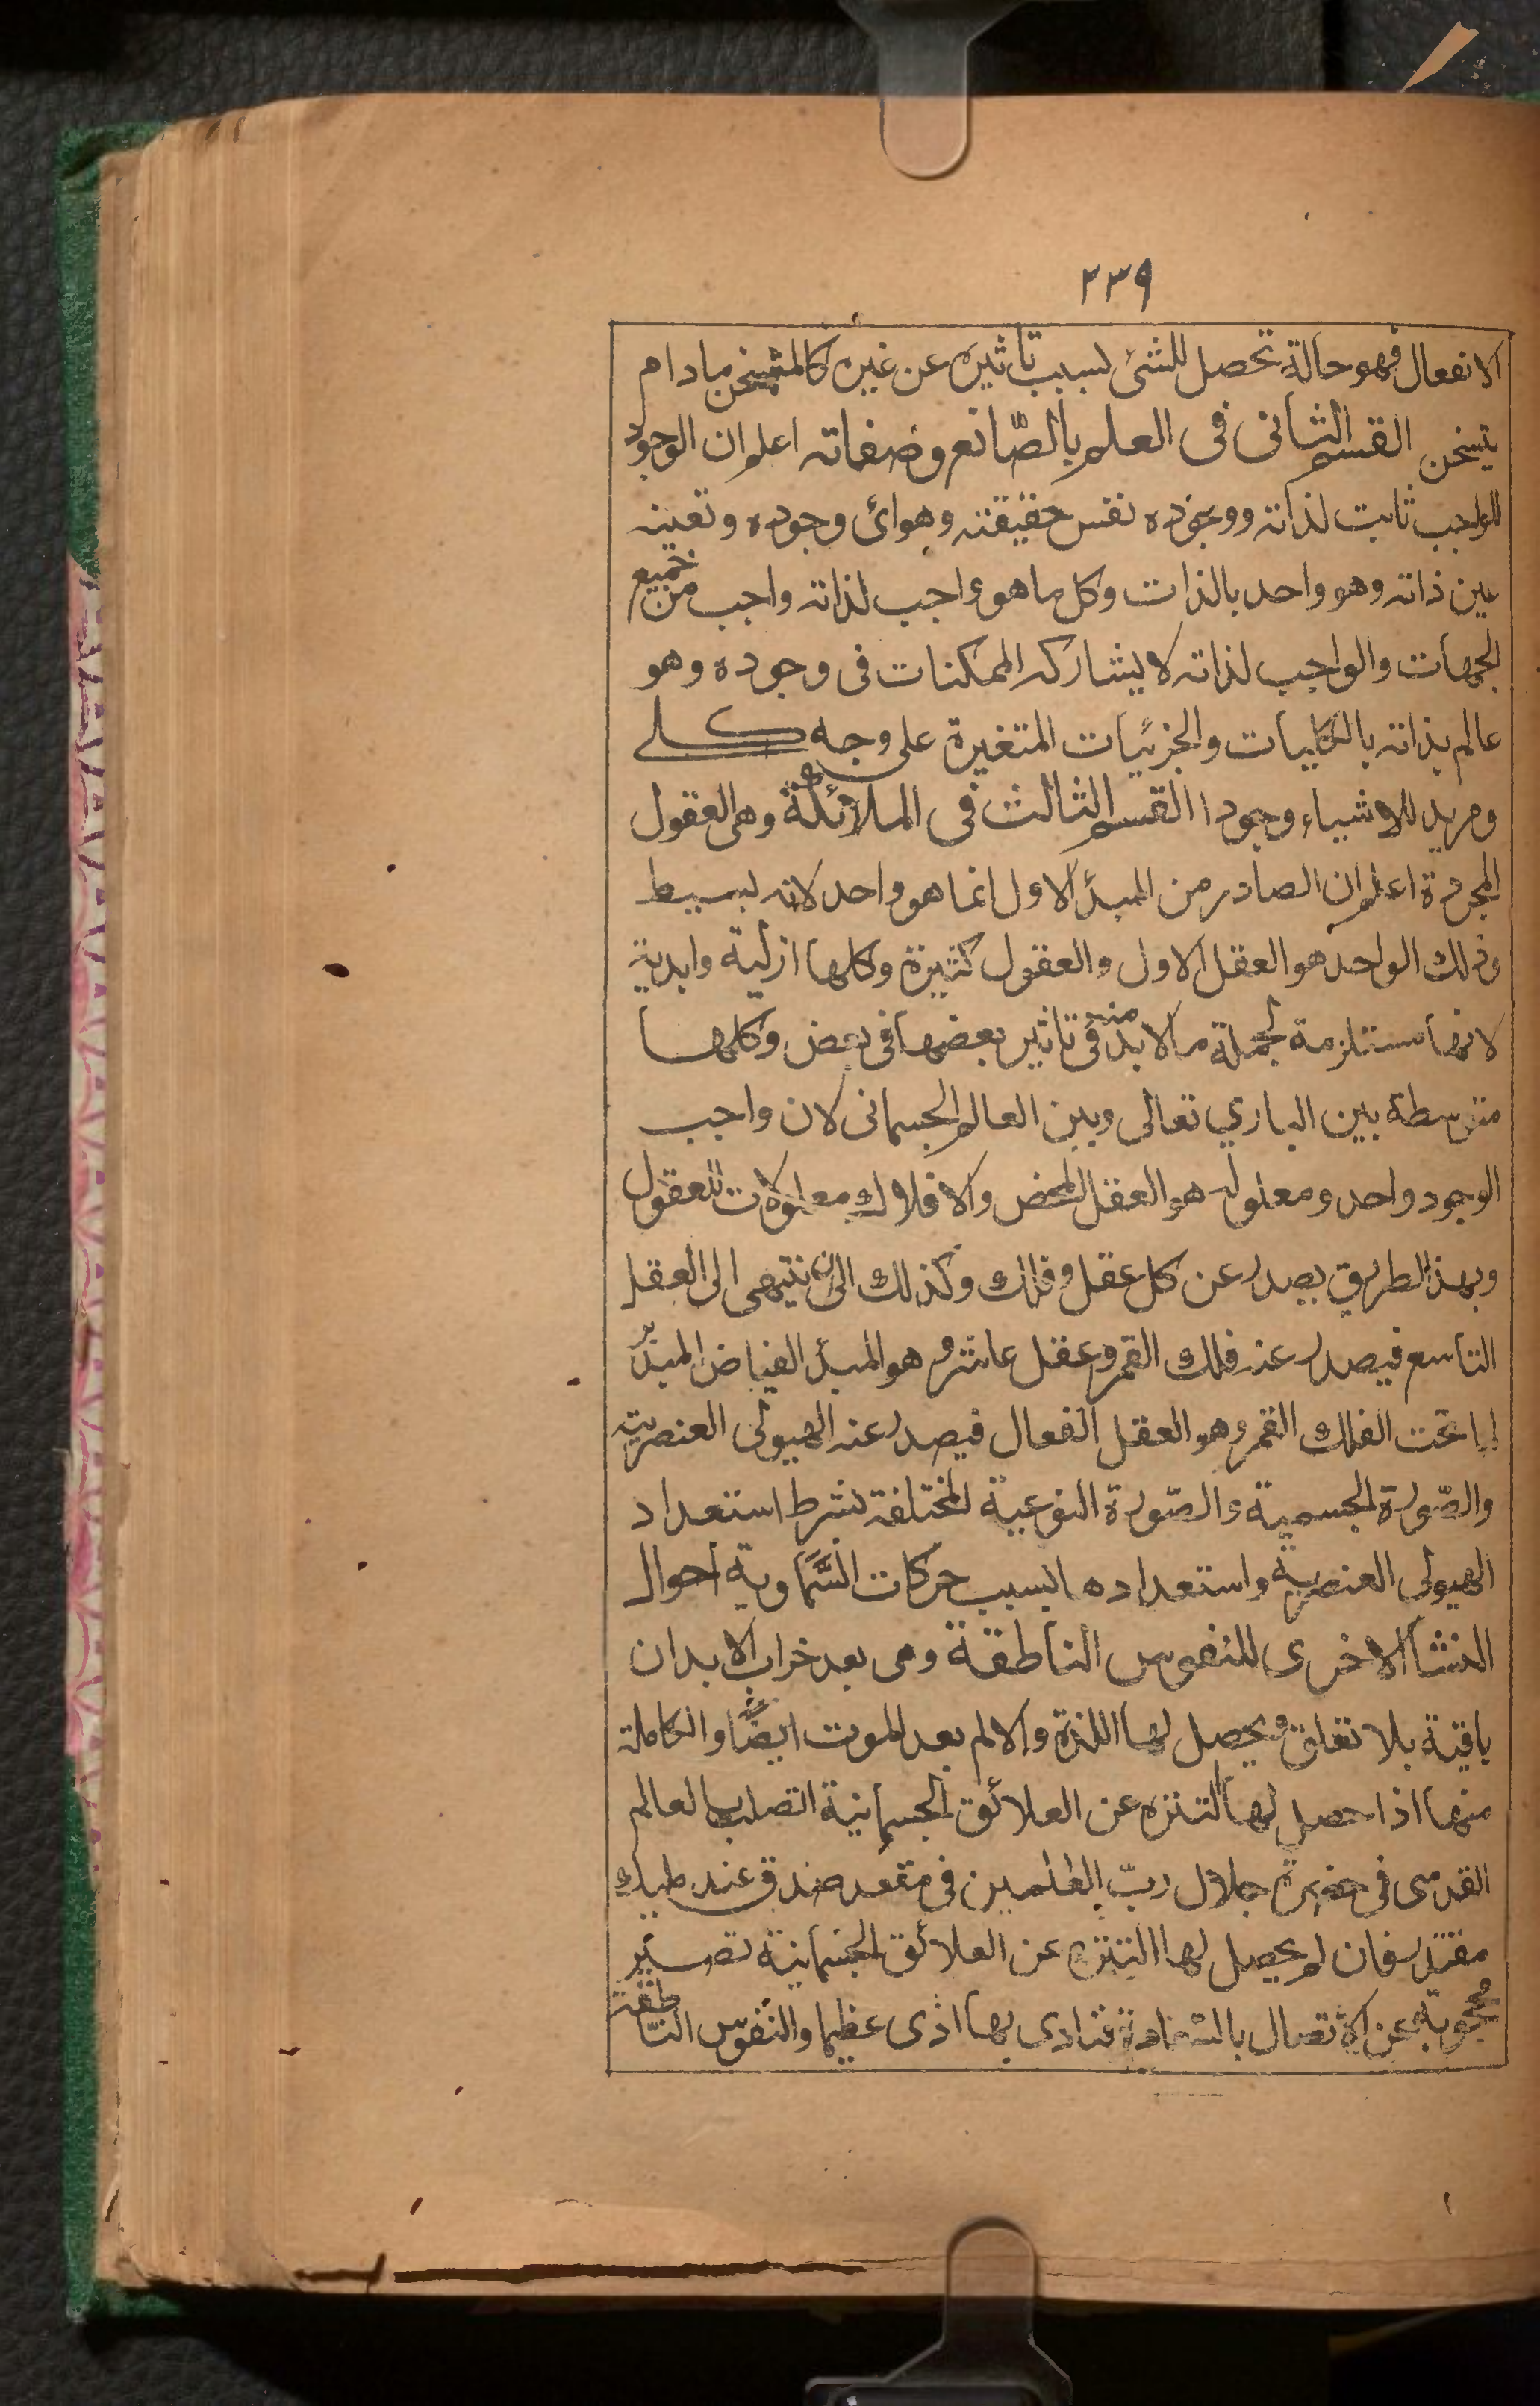 ٢٣٩
الانفعال فهو حالة تحصل للشئ لسبب تأثيره عن غيره كالمتسخن مادام
يتسخن القسم الثانى فى العلم بالصّانع وصفاته اعلم ان الوجود
للواجب ثابت لذاته ووجوده نفس حقيقته وهو اى وجوده وتعينه
عين ذاته وهو واحد بالذات وكل ما هو واجب لذاته واجب من جميع
الجهات والواجب لذاته لا يشاركه الممكنات فى وجوده وهو
عالم بذاته بالكليات والجزئيات المتغيرة على وجه كلے
ومريد للاشياء وجودا القسم الثالث فى الملائكة وهى العقول
المجردة اعلم ان الصادر من المبدأ الاول انما هو واحد لانه بسيط
وذلك الواحد هو العقل الاول والعقول كثيرة وكلها ازلية وابدية
لانها مستلزمة لجملة ما لابد منه فى تاثير بعضها فى بعض وكلها
متوسطة بين الباري تعالى وبين العالم الجسمانى لان واجب
الوجود واحد ومعلوله هو العقل المحض والافلاك معلولات للعقول
وبهذ الطريق يصدر عن كل عقل وفلك وكذلك الى ان ينتهى الى العقل
التاسع فيصدر عنه فلك القمر وعقل عاشر وهو المبدأ الفياض المدبّر
لما تحت الفلك القمر وهو العقل الفعال فيصدر عنه الهيولى العنصرية
والصّورة الجسمية والصّورة النوعية المختلفة بشرط استعداد
الهيولى العنصرية واستعدادها بسبب حركات السَّماوية احوال
النشأ الاخرى للنفوس الناطقة وهى بعد خراب الابدان
باقية بلا تعلق ويحصل لها اللذة والالم بعد الموت ايضًا والكاملة
منها اذا حصل لها التنزه عن العلائق الجسمانية اتصلت بالعالم
القدسى فى حضرة جلال ربّ العلمين فى مقعد صدق عند مليك
مقتدر فان لم يحصل لها التنزه عن العلائق الجسمانية تصير
محجوبة عن الاتصال بالسّعادة فتادى بها اذى عظيما والنفوس النّاطقة